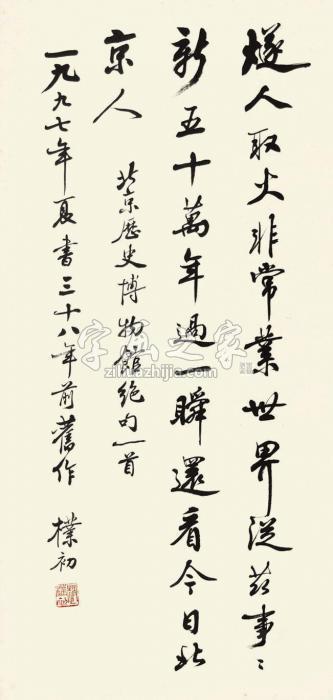 燧人取火非常業世界從茲事〻
新五十萬年過一瞬還看今日北
京人
北京歷史博物館絕句一首
一九九七年夏書三十八年前舊作
樸初
字画之家
zihuazhijia.com